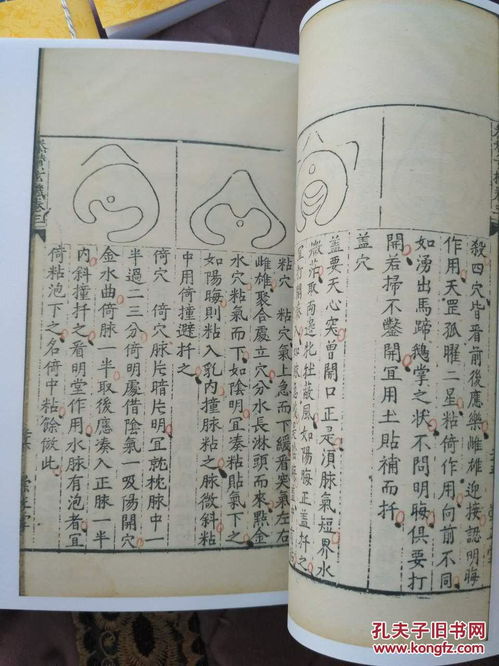 殺四穴皆看前後應樂雌雄迎接認明晦
作用天罡孤曜二星粘倚作用向前不同
如湧出馬蹄鵝掌之状不問明晦俱要打
開若掃不鑿開冝用土貼補而扦
盖穴
盖要天心突曾開口正是湏脉氣短界水
微茫取兩邊牝牡蔽風如陽晦正盖就
冝打開
粘穴 粘穴氣上急而下緩看窝氣左右
雌雄聚合處立穴分水長淋頭而來㸃金
水穴粘氣而下如陰明冝凑粘貼氣下之
如陽晦則粘入乳内撞脉粘之脉微斜粘
中用倚撞避扦之
倚穴 倚穴脉片暗片明冝就枕脉中一
半過二三分倚明處借陰氣一吸陽開穴
金水曲倚脉一半取後應凑入正脉一半
内斜撞扦之看明堂作用水脉有泡者冝
倚粘泡下之名倚中粘餘倣此
孔夫子旧书网
www.kongfz.com